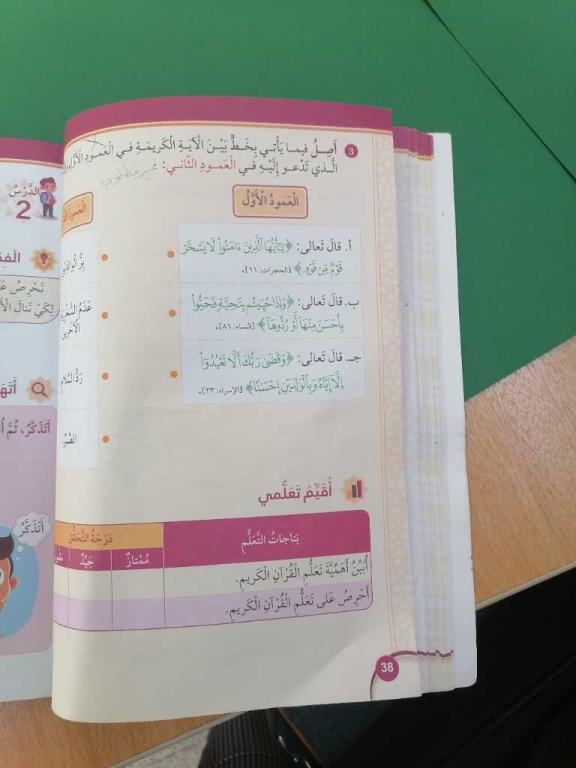 3 أَصِلُ فيما يَأْتي بِخَطٍّ بَيْنَ الْآيَةِ الْكَريمَةِ في الْعَمودِ الْأَوَّلِ
الَّذي تَدْعو إِلَيْهِ في الْعَمودِ الثّاني: غير مطلوب
الْعَمودُ الْأَوَّلُ
أ. قالَ تَعالى: ﴿يَٰٓأَيُّهَا ٱلَّذِينَ ءَامَنُواْ لَا يَسۡخَرۡ
قَوۡمٞ مِّن قَوۡمٍ﴾ [الحجرات: ١١].
ب. قالَ تَعالى: ﴿وَإِذَا حُيِّيتُم بِتَحِيَّةٖ فَحَيُّواْ
بِأَحۡسَنَ مِنۡهَآ أَوۡ رُدُّوهَآ﴾ [النساء: ٨٦].
جـ. قالَ تَعالى: ﴿وَقَضَىٰ رَبُّكَ أَلَّا تَعۡبُدُوٓاْ
إِلَّآ إِيَّاهُ وَبِٱلۡوَٰلِدَيۡنِ إِحۡسَٰنًا﴾ [الإسراء: ٢٣].
الْعَمودُ
بِرُّ
عَدَمُ
الْآخَرينَ
رَدُّ السَّلامِ
الصَّبْرُ.
أُقَيِّمُ تَعَلُّمي
نِتاجاتُ التَّعَلُّمِ
دَرَجَةُ التَّحَقُّقِ
مُمْتازٌ جَيِّدٌ
أُبَيِّنُ أَهَمِّيَّةَ تَعَلُّمِ الْقُرْآنِ الْكَريمِ.
أَحْرِصُ عَلى تَعَلُّمِ الْقُرْآنِ الْكَريمِ.
38
الدَّرْسُ
2
نَحْرِصُ
لِكَيْ نَنالَ
أَتَذَكَّرُ، ثُمَّ
أَتَذَكَّرُ